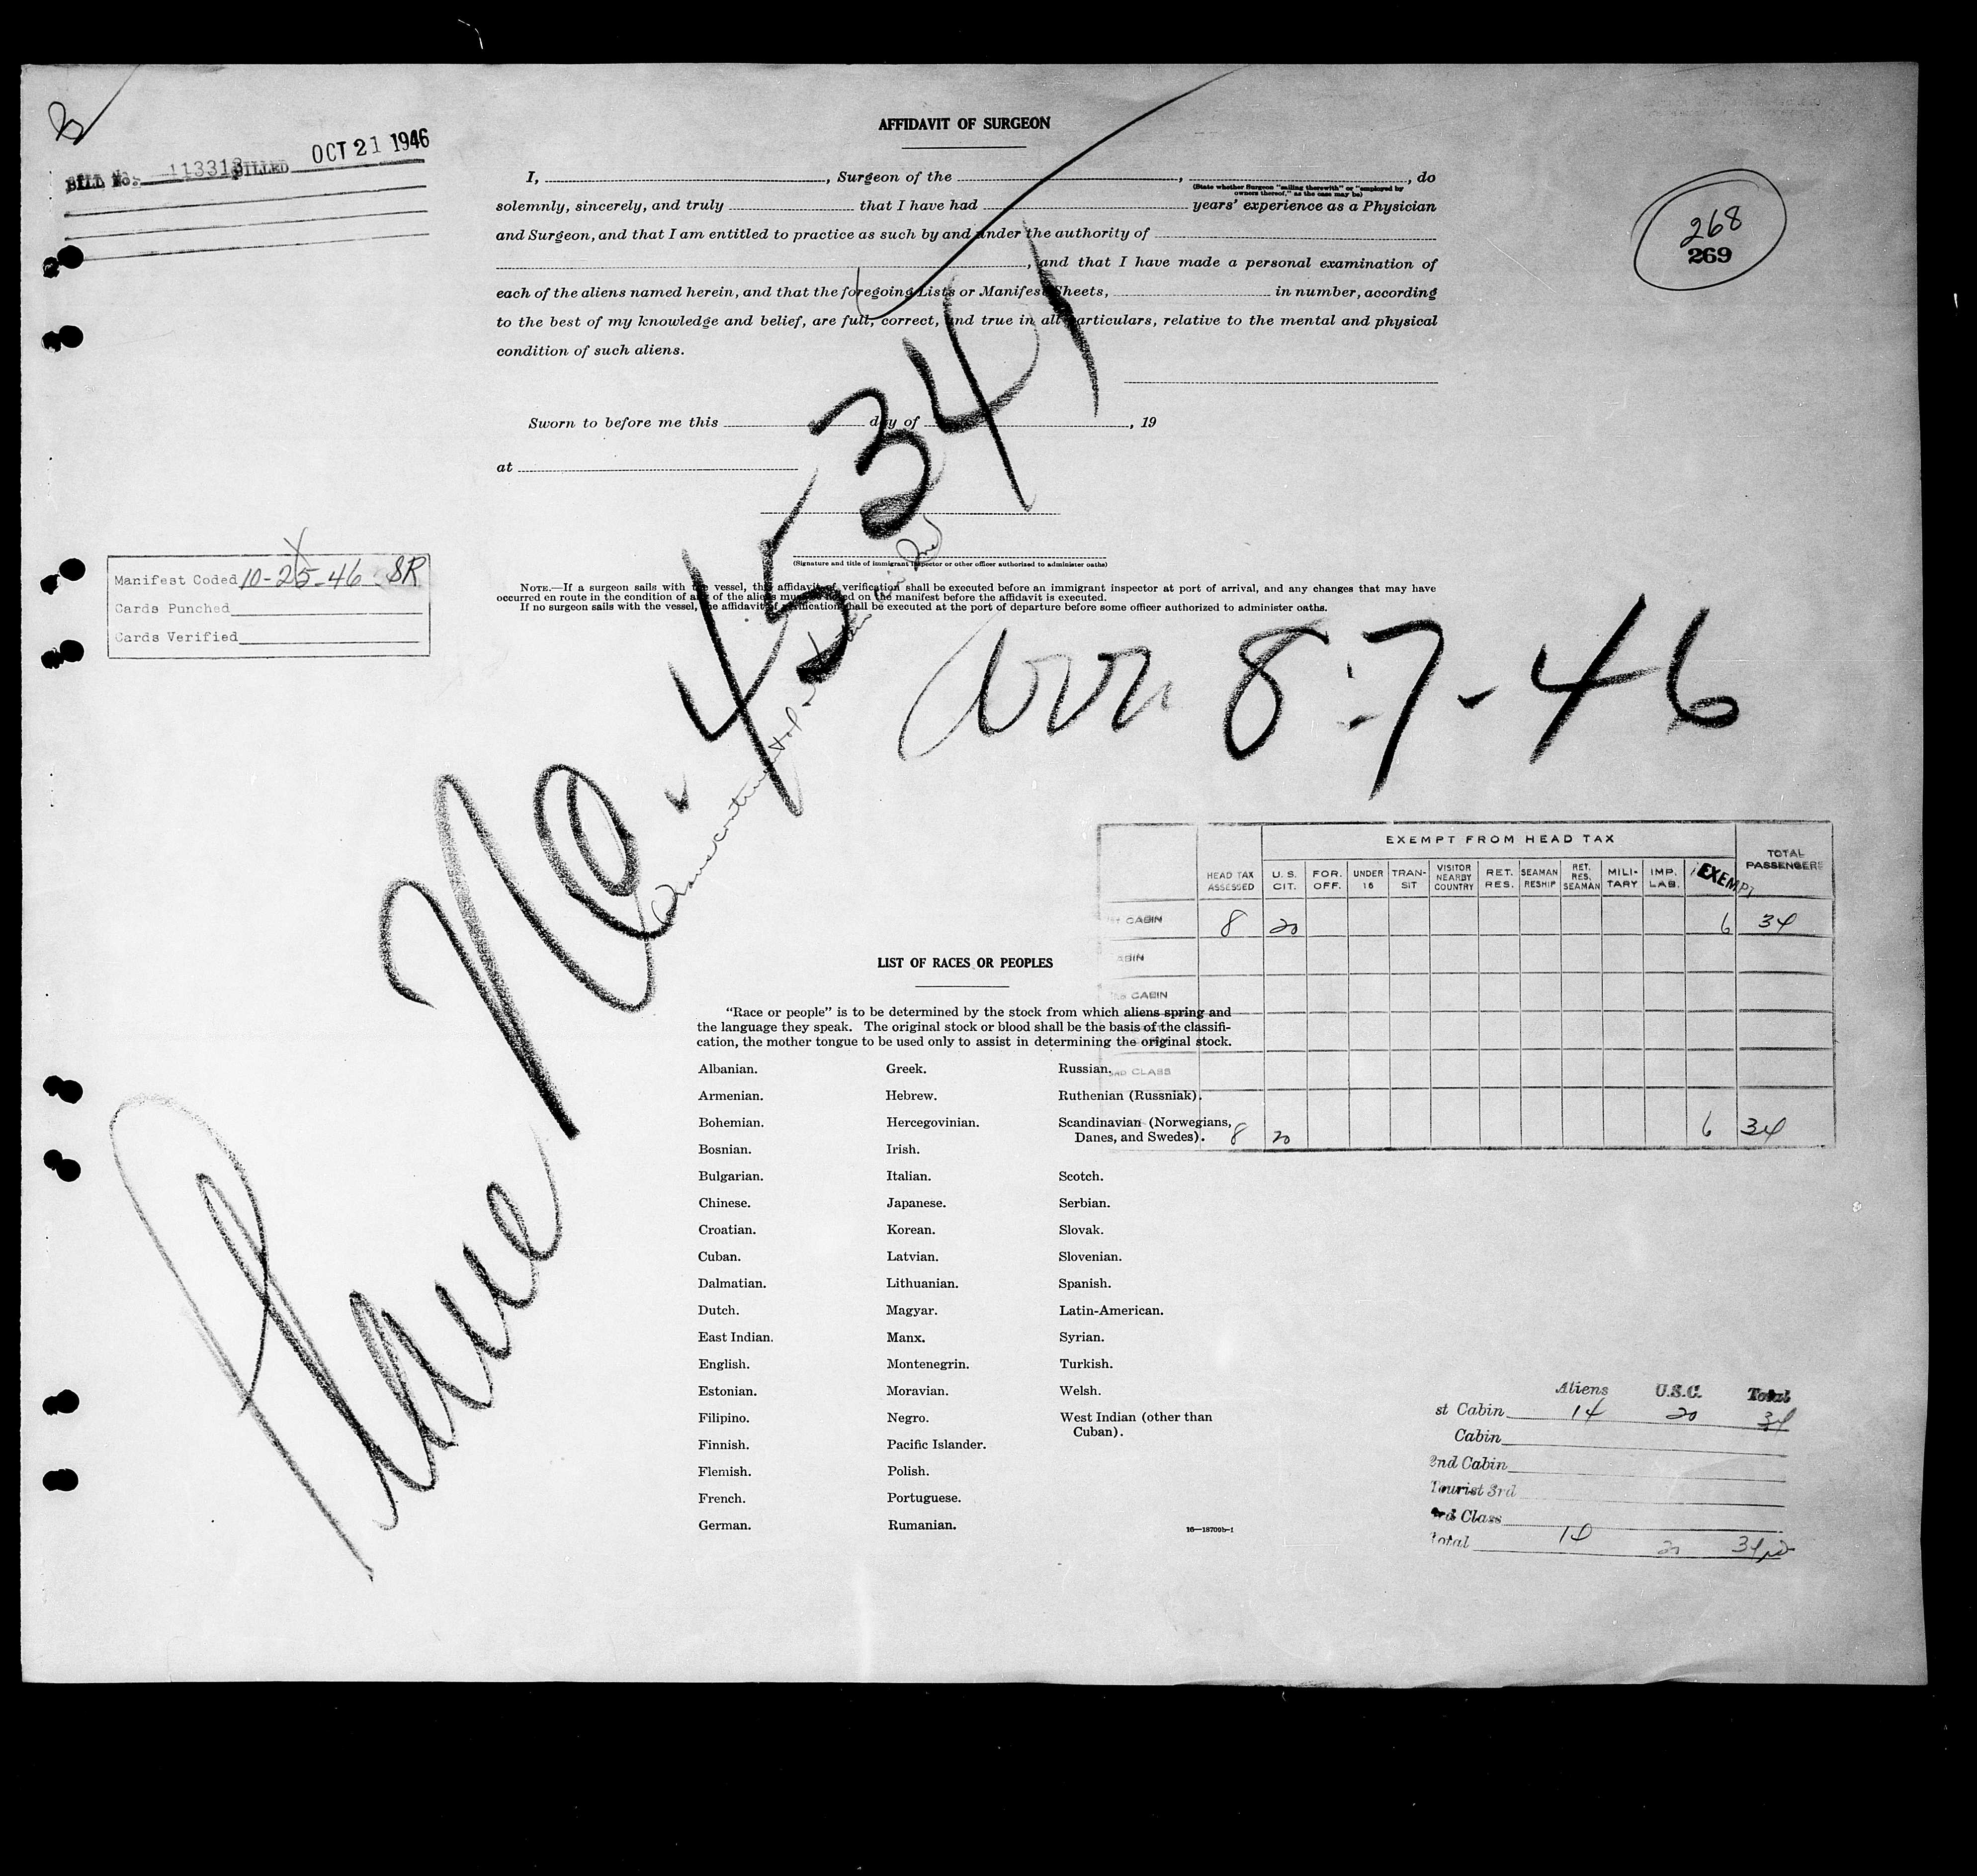 AFFIDAVIT OF SURGEON
BILL No. 113313 BILLED OCT 21 1946
I, , Surgeon of the , , do
(State whether Surgeon "sailing therewith" or "employed by
owners thereof," as the case may be)
solemnly, sincerely, and truly that I have had years' experience as a Physician
and Surgeon, and that I am entitled to practice as such by and under the authority of
, and that I have made a personal examination of
each of the aliens named herein, and that the foregoing Lists or Manifest Sheets, in number, according
to the best of my knowledge and belief, are full, correct, and true in all particulars, relative to the mental and physical
condition of such aliens.
268
269
Sworn to before me this day of , 19
at
(Signature and title of immigrant inspector or other officer authorized to administer oaths)
Manifest Coded 10-25-46 SR
Cards Punched
Cards Verified
NOTE.—If a surgeon sails with the vessel, this affidavit of verification shall be executed before an immigrant inspector at port of arrival, and any changes that may have
occurred en route in the condition of any of the aliens must be noted on the manifest before the affidavit is executed.
If no surgeon sails with the vessel, the affidavit of verification shall be executed at the port of departure before some officer authorized to administer oaths.
Plane NC-45341
arr 8-7-46
EXEMPT FROM HEAD TAX
HEAD TAX ASSESSED U.S. CIT. FOR. OFF. UNDER 16 TRAN-SIT VISITOR NEARBY COUNTRY RET. RES. SEAMAN RESHIP RET. RES. SEAMAN MILI-TARY IMP. LAB. EXEMPT TOTAL PASSENGERS
1st CABIN 8 20 6 34
CABIN
2nd CABIN
3RD CLASS
8 20 6 34
LIST OF RACES OR PEOPLES
"Race or people" is to be determined by the stock from which aliens spring and
the language they speak. The original stock or blood shall be the basis of the classifi-
cation, the mother tongue to be used only to assist in determining the original stock.
Albanian. Greek. Russian.
Armenian. Hebrew. Ruthenian (Russniak).
Bohemian. Hercegovinian. Scandinavian (Norwegians,
Danes, and Swedes).
Bosnian. Irish.
Bulgarian. Italian. Scotch.
Chinese. Japanese. Serbian.
Croatian. Korean. Slovak.
Cuban. Latvian. Slovenian.
Dalmatian. Lithuanian. Spanish.
Dutch. Magyar. Latin-American.
East Indian. Manx. Syrian.
English. Montenegrin. Turkish.
Estonian. Moravian. Welsh.
Filipino. Negro. West Indian (other than
Cuban).
Finnish. Pacific Islander.
Flemish. Polish.
French. Portuguese.
German. Rumanian.
16—18709b-1
Aliens U.S.C. Total
st Cabin 14 20 34
Cabin
2nd Cabin
Tourist 3rd
3rd Class
Total 14 20 34